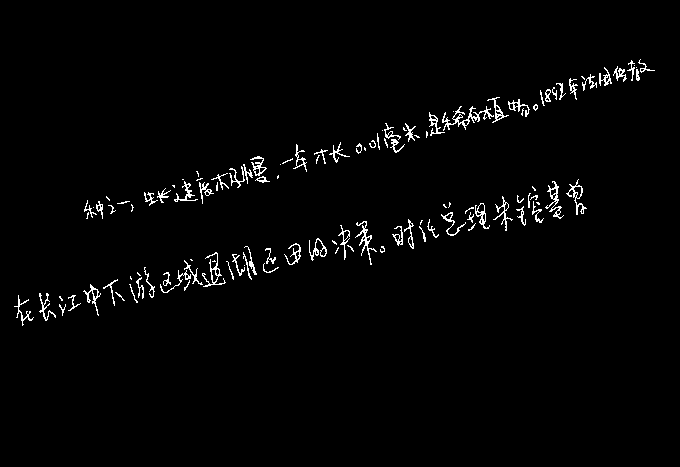 种之一，生长速度极慢，一年才长0.01毫米，是稀有植物。1892年法国传教
在长江中下游区域退湖还田的决策。时任总理朱镕基曾